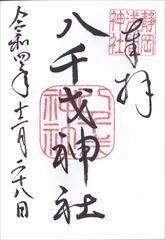 奉拝
静岡
浅間
神社
八千戈神社
令和四年十二月二十八日